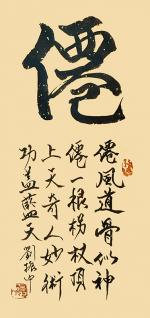 僊
僊風道骨似神
僊一根柺杖頂
上天奇人妙術
功蓋藍天劉振中